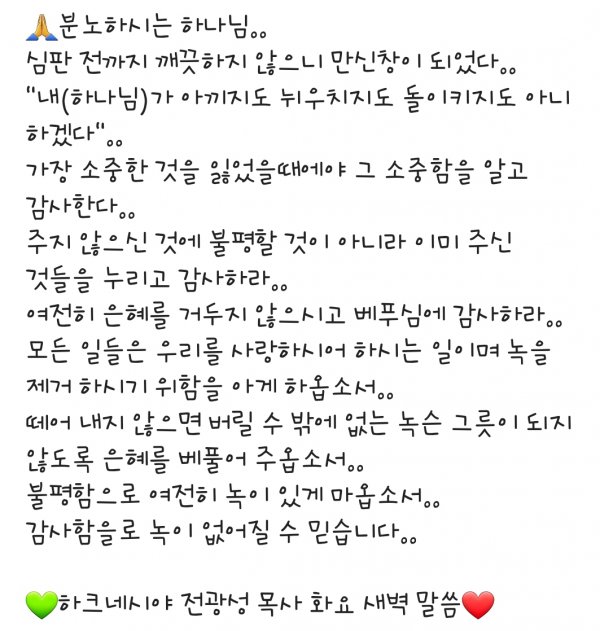 🙏분노하시는 하나님..
심판 전까지 깨끗하지 않으니 만신창이 되었다..
"내(하나님)가 아끼지도 뉘우치지도 돌이키지도 아니
하겠다"..
가장 소중한 것을 잃었을때에야 그 소중함을 알고
감사한다..
주지 않으신 것에 불평할 것이 아니라 이미 주신
것들을 누리고 감사하라..
여전히 은혜를 거두지 않으시고 베푸심에 감사하라..
모든 일들은 우리를 사랑하시어 하시는 일이며 녹을
제거 하시기 위함을 아게 하옵소서..
떼어 내지 않으면 버릴 수 밖에 없는 녹슨 그릇이 되지
않도록 은혜를 베풀어 주옵소서..
불평함으로 여전히 녹이 있게 마옵소서..
감사함을로 녹이 없어질 수 믿습니다..
💚하크네시야 전광성 목사 화요 새벽 말씀❤️